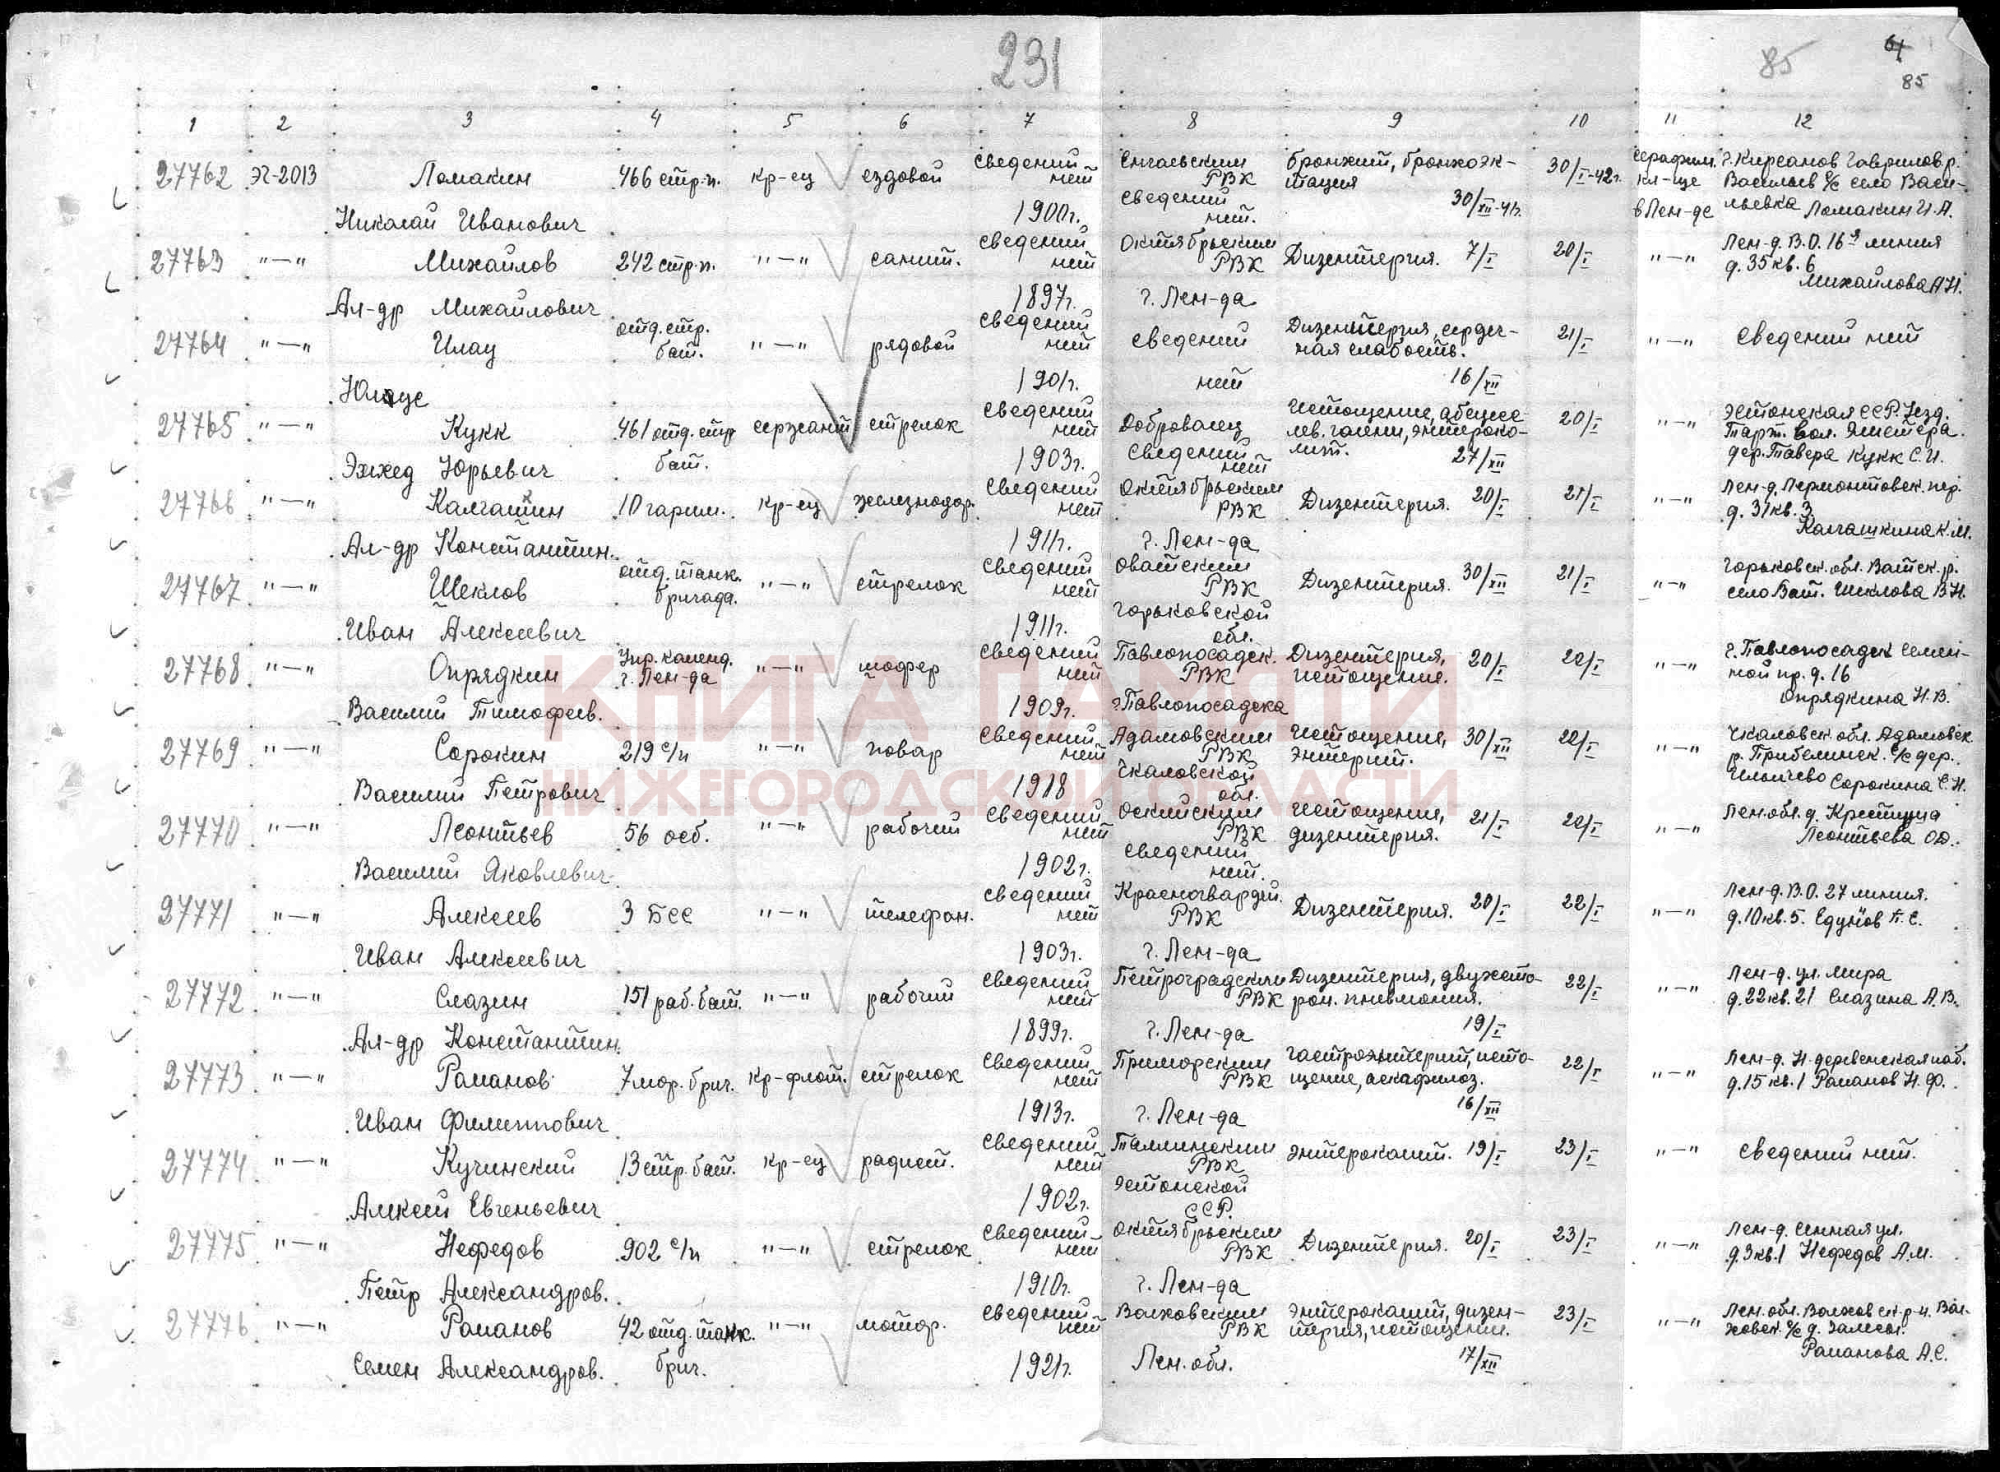 231
85
61
85
1 2 3 4 5 6 7 8 9 10 11 12
27762 ЭГ-2013 Ломакин 466 стр.п. кр-ец ездовой сведений нет РВК бронхит, бронхоэк-тация 30/I-42г. серафим. кл-ще в Лен-де г. Кирсанов Гаврилов.р. Васильев с/с село Васи-льевка Ломакин И.А.
Николай Иванович 1900г. сведений нет. 30/XII-41г.
27763 "—" Михайлов 242 стр.п. "—" санит. сведений нет Октябрьским РВК Дизентерия. 7/I 20/I "—" Лен-д. В.О. 16я линия д. 35 кв. 6 Михайлова А.Н.
Ал-др Михайлович 1897г. г. Лен-да
27764 "—" Илау отд. стр. бат. "—" рядовой сведений нет сведений Дизентерия, сердеч-ная слабость. 21/I "—" сведений нет
1901г. нет 16/XII
27765 "—" Кукк 461 отд. стр. бат. сержант стрелок сведений нет Доброволец Истощение, абсцесс лев. голени, энтероко-лит. 20/I "—" Эстонская ССР. Уезд. Тарт. вол. дер. Тавера Кукк С.И.
Юрьевич 1903г. сведений нет 27/XII
27766 "—" Калгашкин 10 гарн. кр-ец железнодор. сведений нет Октябрьским РВК Дизентерия. 20/I 21/I "—" Лен-д. Лермонтовск. пер. д. 31 кв. 3 Калгашкина К.М.
Ал-др Константин. 1911г. г. Лен-да
27767 "—" Шеклов отд. танк. бригада. "—" стрелок сведений нет РВК Дизентерия. 30/XII 21/I "—" Горьковск. обл. Ватск. р. село Ват. Шеклова В.Н.
Иван Алексеевич 1911г. Горьковской обл.
27768 "—" Опрядкин Упр. коменд. г. Лен-да "—" шофер сведений нет Павлопосадск. РВК Дизентерия, истощение. 20/I 22/I "—" г. Павлопосадск Семен-ной пр. д. 16 Опрядкина Н.В.
Василий Тимофеев. 1909г. г. Павлопосадска
27769 "—" Сорокин 219 с/п "—" повар сведений нет Адамовским РВК Истощение, энтерит. 30/XII 22/I "—" Чкаловск. обл. Адамовск. р. с/с дер. Сорокина С.Н.
Василий Петрович 1918 Чкаловской обл.
27770 "—" Леонтьев 56 осб. "—" рабочий сведений нет РВК Истощение, дизентерия. 21/I 22/I "—" Лен. обл. д. Леонтьева О.Д.
Василий Яковлевич 1902г. сведений нет.
27771 "—" Алексеев 3 БСС "—" телефон. сведений нет Красногвардей. РВК Дизентерия. 20/I 22/I "—" Лен-д. В.О. 27 линия. д. 10 кв. 5.
Иван Алексеевич 1903г. г. Лен-да
27772 "—" Слазин 151 раб. бат. "—" рабочий сведений нет Петроградским РВК Дизентерия, двухсто-рон. пневмония. 22/I "—" Лен-д. ул. Мира д. 22 кв. 21 Слазина А.В.
Ал-др Константин. 1899г. г. Лен-да 19/I
27773 "—" Романов 7 мор. бриг. кр-флот. стрелок сведений нет Приморским РВК гастроэнтерит, исто-щение, 22/I "—" Лен-д. Н. деревенская наб. д. 15 кв. 1 Романов Н.Ф.
Иван Филиппович 1913г. г. Лен-да 16/XII
27774 "—" Кучинский 13 стр. бат. кр-ец радист. сведений нет Таллинским РВК энтероколит. 19/I 23/I "—" сведений нет.
Алексей Евгеньевич 1902г. Эстонской ССР.
27775 "—" Нефедов 902 с/п "—" стрелок сведений нет Октябрьским РВК Дизентерия. 20/I 23/I "—" Лен-д. Сенная ул. д. 3 кв. 1 Нефедов А.М.
Петр Александров. 1910г. г. Лен-да
27776 "—" Романов 42 отд. танк. бриг. "—" мотор. сведений нет Волховским РВК энтероколит, дизен-терия, истощение. 23/I "—" Лен. обл. Волховск. р-н. Вол-ховск. с/с д. Романова А.С.
Семен Александров. 1921г. Лен. обл. 17/XII
КНИГА ПАМЯТИ
НИЖЕГОРОДСКОЙ ОБЛАСТИ